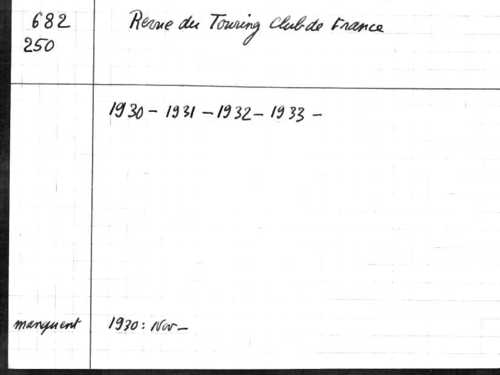 682
250
Revue du Touring Club de France
1930 - 1931 - 1932 - 1933 -
manquent
1930 : Nov -